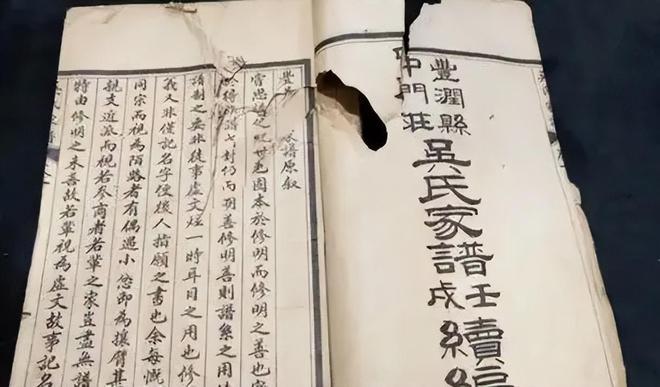 豐潤縣
中門莊
吳氏家譜
壬戌
續編
豐
譜原叙
嘗思 世也固本於修明而修明之善也
善修明善則譜系之用
譜制之要非徒事虛文炫一時耳目之用也修
義又非僅記名字便後人指顧之書也余每慨
同宗而視為陌路者有偶遇小忿即為攘臂其
親支近派而視若參商者若輩之家豈盡無譜
特由修明之未善故若輩視為虛文故事記名